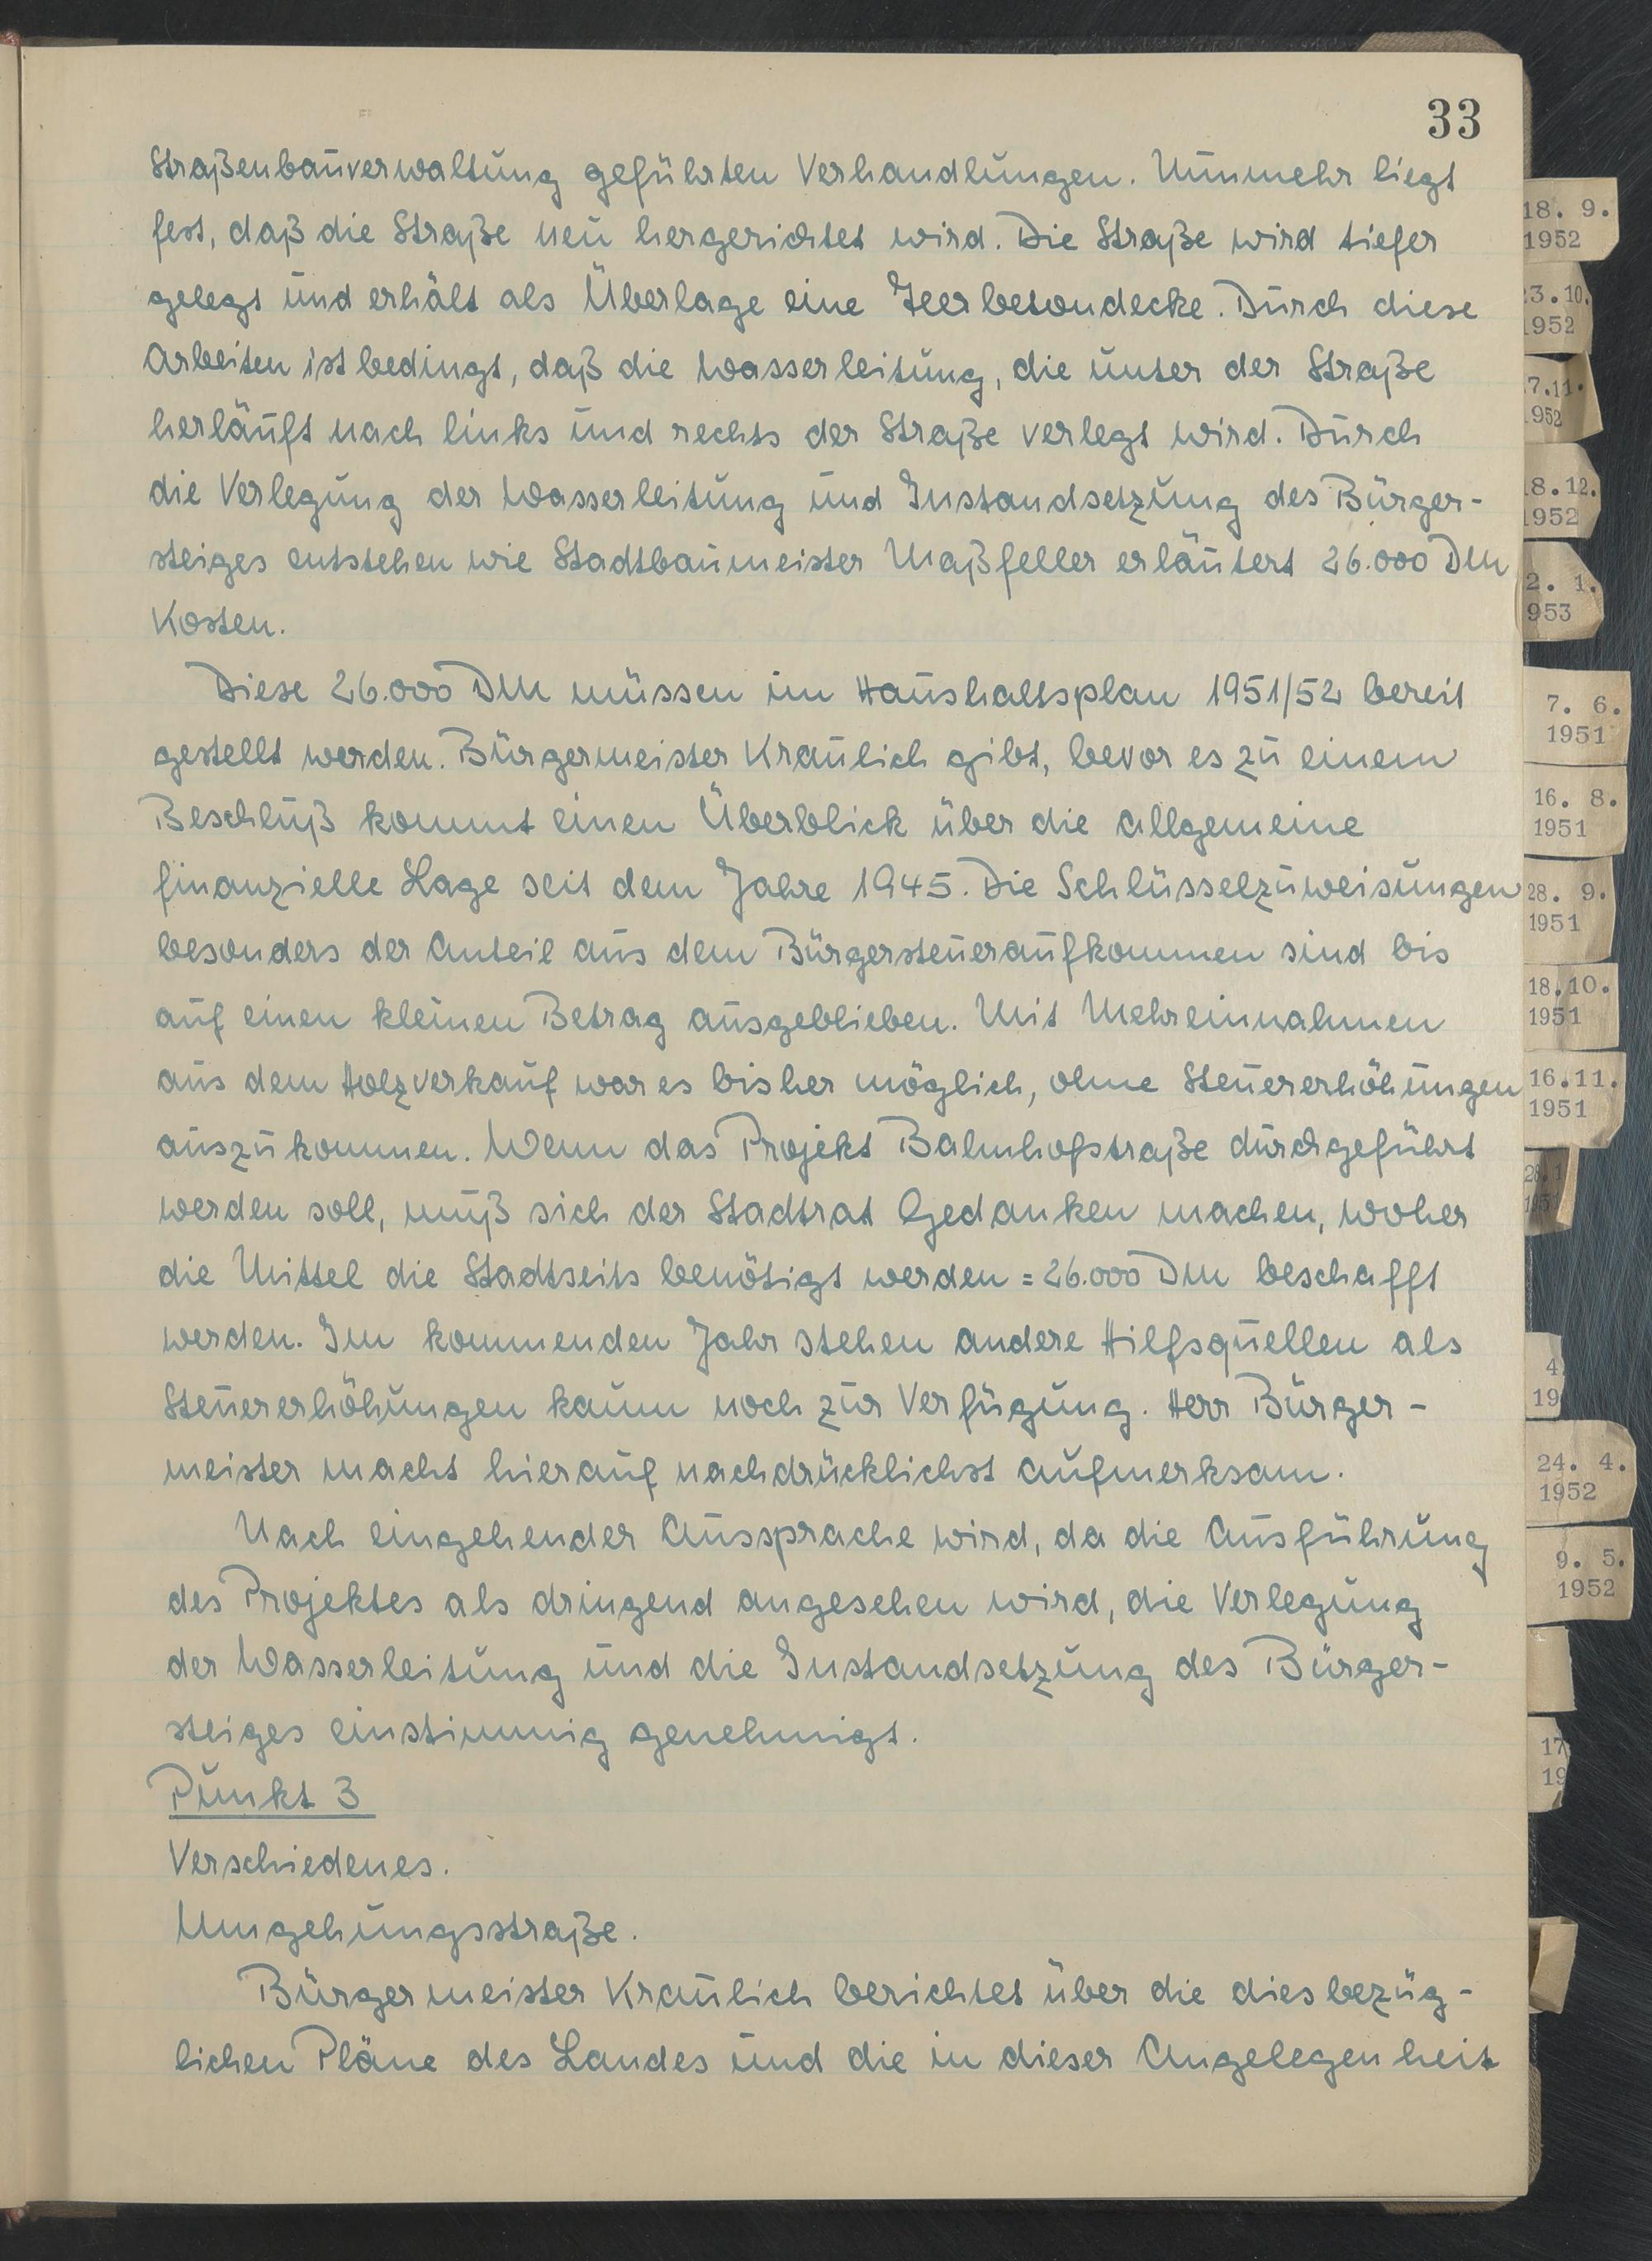 33
Straßenbauverwaltung geführten Verhandlungen. Nunmehr liegt
fest, daß die Straße neu hergerichtet wird. Die Straße wird tiefer
gelegt und erhält als Überlage eine Teerbetondecke. Durch diese
Arbeiten ist bedingt, daß die Wasserleitung, die unter der Straße
herläuft nach links und rechts der Straße verlegt wird. Durch
die Verlegung der Wasserleitung und Instandsetzung des Bürger-
steiges entstehen wie Stadtbaumeister Maßfeller erläutert 26.000 DM
Kosten.
Diese 26.000 DM müssen im Haushaltsplan 1951/52 bereit
gestellt werden. Bürgermeister Kraulich gibt, bevor es zu einem
Beschluß kommt einen Überblick über die allgemeine
finanzielle Lage seit dem Jahre 1945. Die Schlüsselzuweisungen
besonders der Anteil aus dem Bürgersteueraufkommen sind bis
auf einen kleinen Betrag ausgeblieben. Mit Mehreinnahmen
aus dem Holzverkauf war es bisher möglich, ohne Steuererhöhungen
auszukommen. Wenn das Projekt Bahnhofstraße durchgeführt
werden soll, muß sich der Stadtrat Gedanken machen, woher
die Mittel die Stadtseits benötigt werden = 26.000 DM beschafft
werden. Im kommenden Jahr stehen andere Hilfsquellen als
Steuererhöhungen kaum noch zur Verfügung. Herr Bürger-
meister macht hierauf nachdrücklichst aufmerksam.
Nach eingehender Aussprache wird, da die Ausführung
des Projektes als dringend angesehen wird, die Verlegung
der Wasserleitung und die Instandsetzung des Bürger-
steiges einstimmig genehmigt.
Punkt 3
Verschiedenes.
Umgehungsstraße.
Bürgermeister Kraulich berichtet über die diesbezüg-
lichen Pläne des Landes und die in dieser Angelegenheit
18. 9.
1952
3.10.
1952
7.11.
1952
8.12.
1952
2. 1.
953
7. 6.
1951
16. 8.
1951
28. 9.
1951
18.10.
1951
16.11.
1951
4
19
24. 4.
1952
9. 5.
1952
17
19